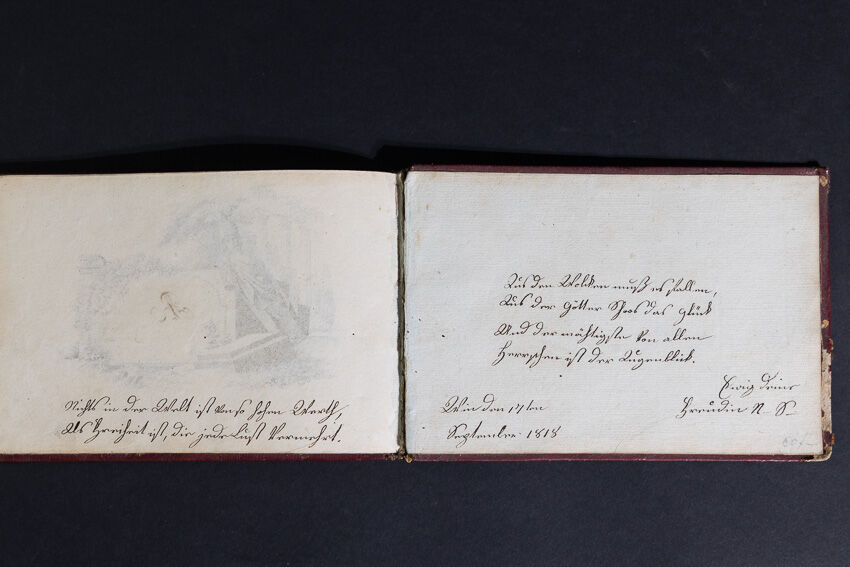 Nichts in der Welt ist von so hohen Werth,
Als Freiheit ist, die jede Lust vermehrt.
Aus den Wolken muß es fallen,
Aus der Götter Schoos das Glück
Und der mächtigste von allen
Herrschen ist der Augenblick.
Ewig deine
Freundin N. S.
Wien den 17ten
September 1818